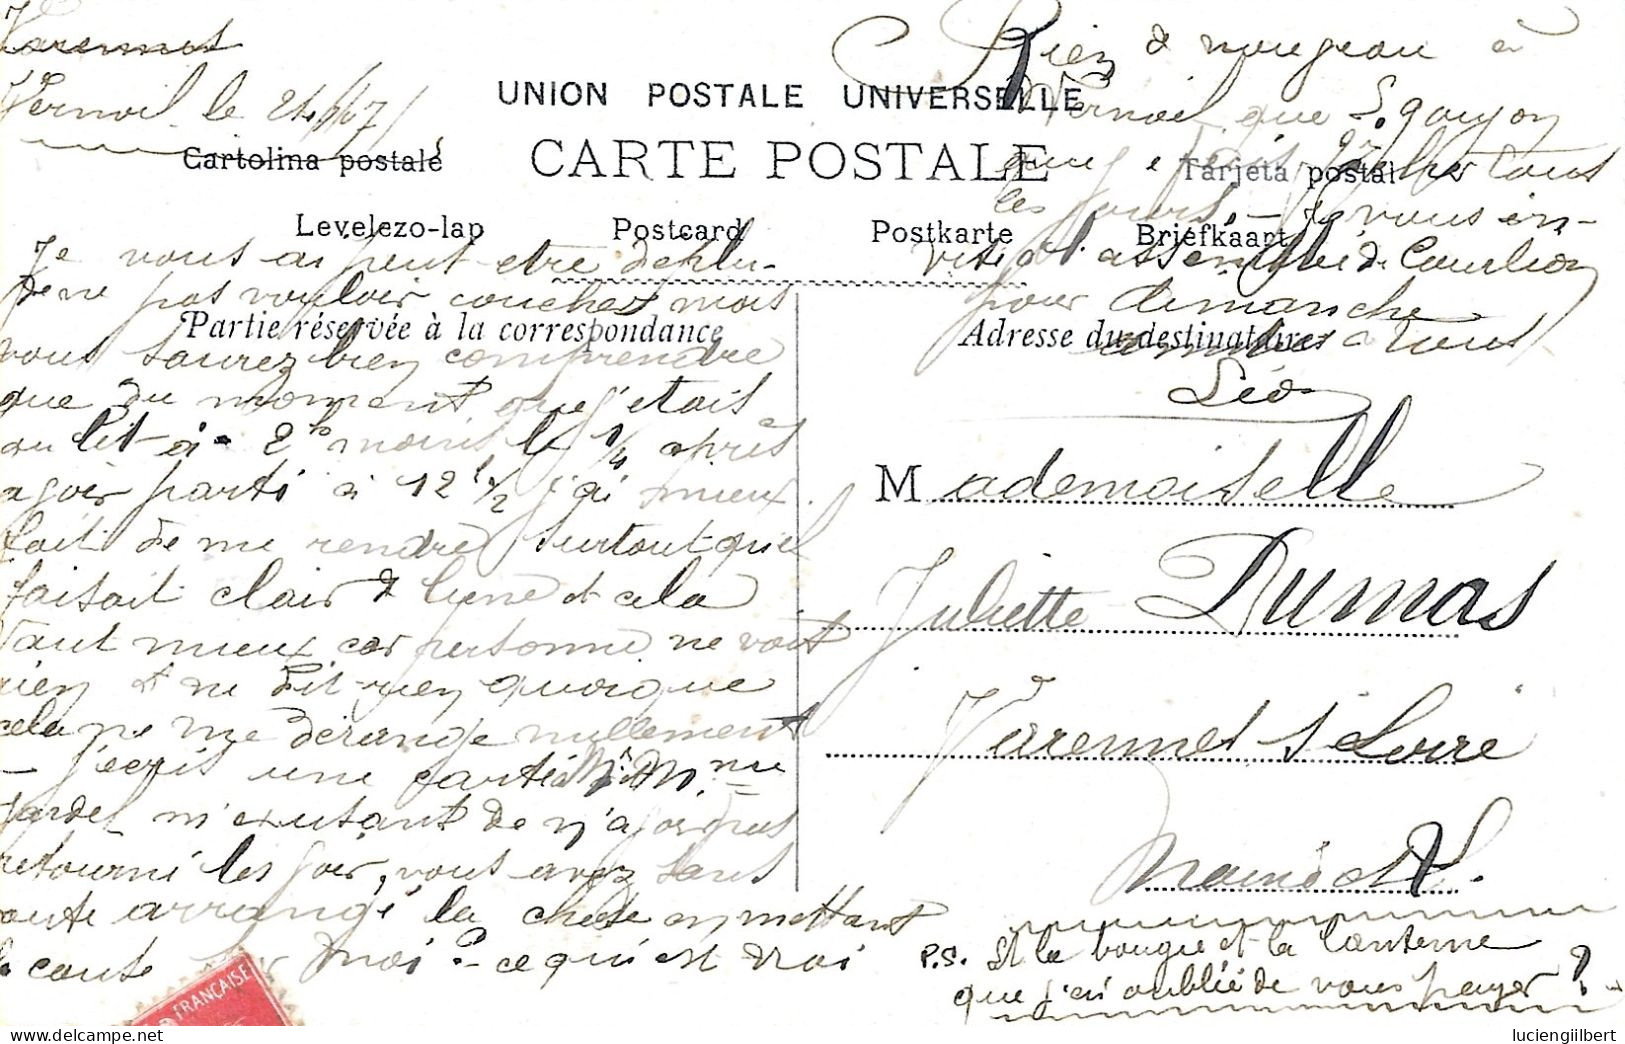 Varennes
Vernoil le 24/9/07
UNION POSTALE UNIVERSELLE
CARTE POSTALE
Cartolina postale
Tarjeta postal
Levelezo-lap
Postcard
Postkarte
Briefkaart
Partie réservée à la correspondance
Adresse du destinataire
Je vous ai peut etre deplu
de ne pas vouloir coucher mais
vous saurez bien comprendre
que du moment que j'etais
au lit à 2h moins le 1/4 après
avoir parti à 12h 1/2 j'ai mieux
fait de me rendre surtout qu'il
faisait clair de lune et cela
vaut mieux car personne ne voit
rien et ne dit rien quoique
cela ne me dérange nullement
- j'écris une carte à Mr Mme
Jardel m'excusant de n'avoir pas
retourné les voir, vous avez sans
doute arrangé la chose en mettant
la faute sur moi ? ce qui est vrai
Rien de nouveau à
Vernoil que
tous
les jours. - Je vous in-
vite à l'assemblée de Courléon
pour dimanche
à tous
Léon
Mademoiselle
Juliette Dumas
Varennes s/ Loire
Maine et L.
P.S. Et la bougie et la lanterne
que j'ai oublié de vous payer ?
FRANÇAISE
luciengilbert